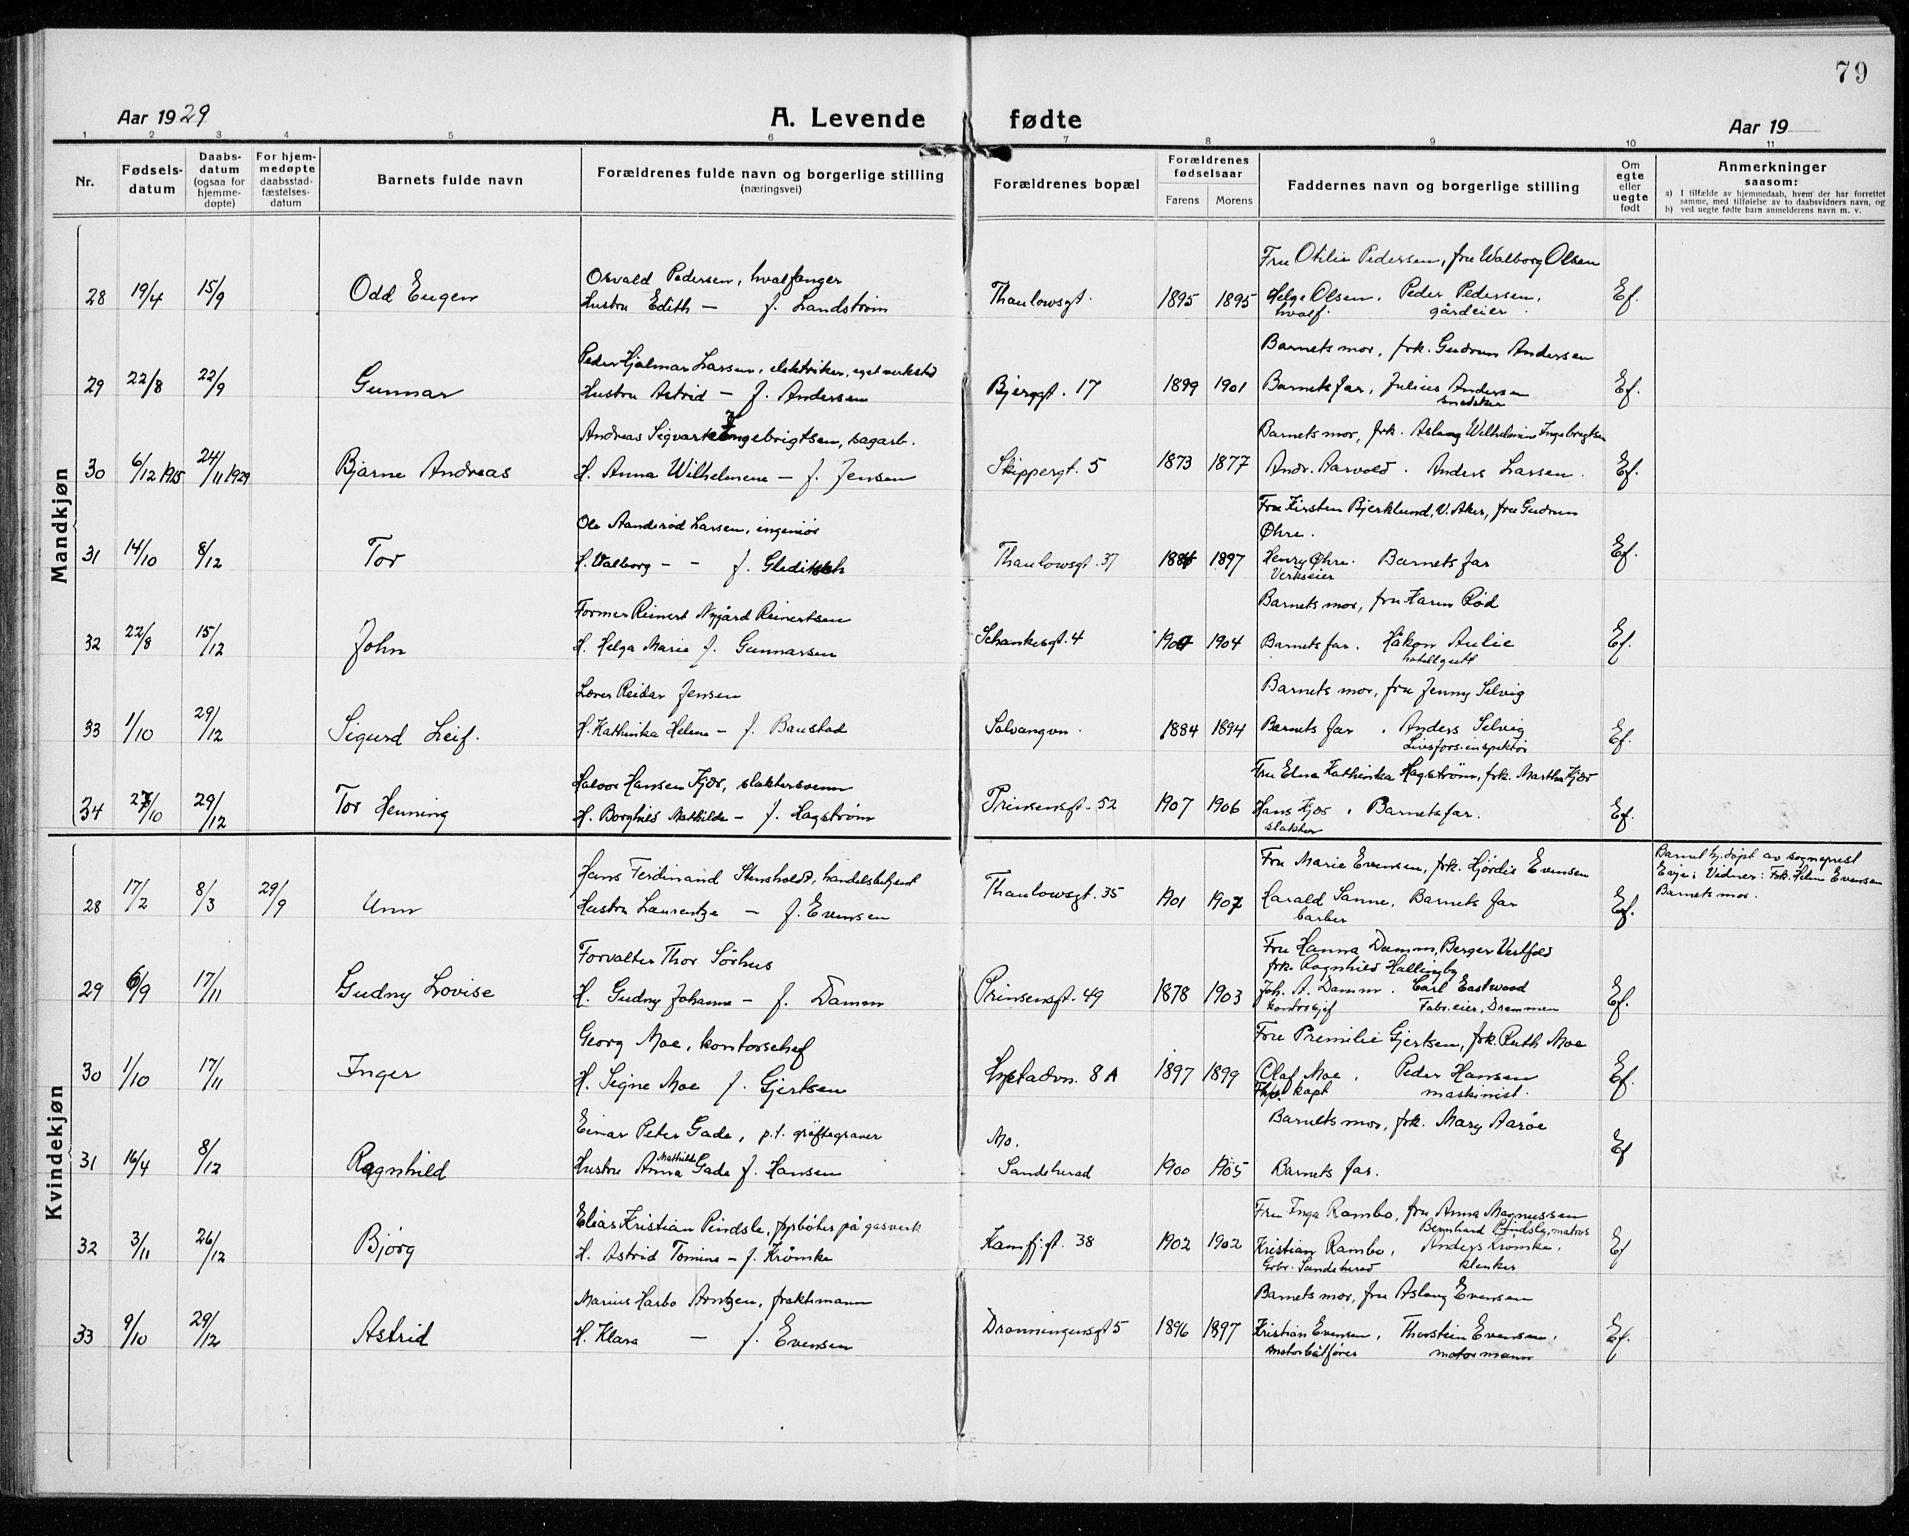 79
Aar 1929
A. Levende fødte
Aar 19
1 2 3 4 5 6 7 8 9 10 11
Nr.
Fødsels-
datum
Daabs-
datum
(ogsaa for
hjemme-
døpte)
For hjem-
medøpte
daabsstad-
fæstelses-
datum
Barnets fulde navn
Forældrenes fulde navn og borgerlige stilling
(næringsvei)
Forældrenes bopæl
Forældrenes
fødselsaar
Farens Morens
Faddernes navn og borgerlige stilling
Om
egte
eller
uegte
født
Anmerkninger
saasom:
a) I tilfælde av hjemmedaab, hvem der har forrettet
samme, med tilføielse av to daabsvidners navn, og
b) ved uegte fødte barn anmelderens navn m. v.
Mandkjøn
28 19/4 15/9 Odd Eugen
Osvald Pedersen, hvalfanger
Hustru Edith — f. Landstrøm
Thaulowsgt. 1895 1895
Fru Otilie Pedersen, fru Walborg Olsen
Helge Olsen, Peder Pedersen,
hvalf. gårdeier.
Ef.
29 22/8 22/9 Gunnar
Peder Hjalmar Larsen, elektriker, eget verksted
Hustru Astrid — f. Andersen
Bjerggt. 17 1899 1901
Barnets mor, frk. Gudrun Andersen
Barnets far, Julius Andersen
snedker
Ef.
30 6/12 1925 24/11 1929 Bjarne Andreas
Andreas Sigvart Ingebrigtsen, sagarb.
H. Anna Wilhelmene — f. Jensen
Skippergt. 5 1873 1877
Barnets mor, frk. Aslaug Wilhelmine Ingebrigtsen
Andr. Aarvold. Anders Larsen.
Ef.
31 14/10 8/12 Tor
Ole Aanderød Larsen, ingeniør
H. Valborg — — f. Gleditsch
Thaulowsgt. 37 1884 1897
Fru Kirsten Bjerklund, V. Aker, fru Gudrun
Øhre.
Henry Øhre. Barnets far
Verkseier
Ef.
32 22/8 15/12 John
Former Reinert Nygård Reinertsen
H. Helga Marie f. Gunnarsen
Schankesgt. 4 1904
Barnets mor, fru Karen Rød
Barnets far. Håkon Aulie
hotellgutt
Ef.
33 1/10 29/12 Sigurd Leif.
Lærer Reidar Jensen
H. Kathinka Helene — f. Baustad
Solvangvn. 1884 1894
Barnets mor, fru Jenny Selvig
Barnets far, Anders Selvig
Livsfors. inspektør
Ef.
34 27/10 29/12 Tor Henning
Halvor Hansen Kjær, slaktersvenn
H. Borghild Mathilde — f. Hagstrøm
Prinsensgt. 52 1907 1906
Fru Elna Kathinka Hagstrøm, frk. Martha Kjær
Hans Kjær, Barnets far.
slakter
Ef.
Kvindekjøn
28 17/2 8/3 29/9 Unn
Hans Ferdinand Stensholdt, handelsbetjent
Hustru Laurentze — f. Evensen
Thaulowsgt. 35 1901 1907
Fru Marie Evensen, frk. Hjørdis Evensen
Harald Sanne, Barnets far
barber
Ef.
Barnet hj. døpt av sogneprest
Evje; Vidner: Frk. Helene Evensen
Barnets mor.
29 6/9 17/11 Gudny Lovise
Forvalter Thor Sørhus
H. Gudny Johanne — f. Damm
Prinsensgt. 49 1878 1903
Fru Hanna Damm, Berger Vestfold
frk. Ragnhild Hallingby
Joh. A. Damm. Carl Eastwood
kontorsjef Fabr. eier, Drammen
Ef.
30 1/10 17/11 Inger
Georg Moe, kontorchef
H. Signe Moe f. Gjertsen
8 A 1897 1899
Fru Premilie Gjertsen, frk. Ruth Moe
Olaf Moe, Peder Hansen
kapt maskinist.
Ef.
31 16/4 8/12 Ragnhild
Einar Peter Gade, p.t. grøftegraver
Hustru Anna Mathilde Gade f. Hansen
Mo.
Sandeherad 1900 1905
Barnets mor, frk. Mary Aarøe
Barnets far.
Ef
32 3/11 26/12 Bjørg
Elias Kristian Pindsle, fyrbøter på gasverk
H. Astrid Tomine — f. Krømke
Kamfj.gt. 38 1902 1902
Fru Inga Rambo, fru Anna Magnussen
Bernhard Pindsle, matros
Kristian Rambo, Anders Krømke,
Grbr. Sandeherad klinker
Ef
33 9/10 29/12 Astrid
Marius Harbo Arntzen, fraktemann
H. Klara — f. Evensen
Dronningensgt 5 1896 1897
Barnets mor, fru Aslaug Evensen
Kristian Evensen, Thorstein Evensen,
Motorbåtfører motormann
Ef.